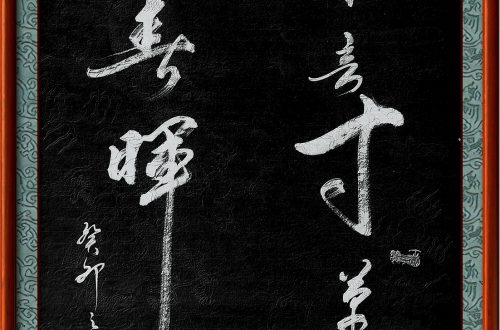 言寸草
春暉
癸卯